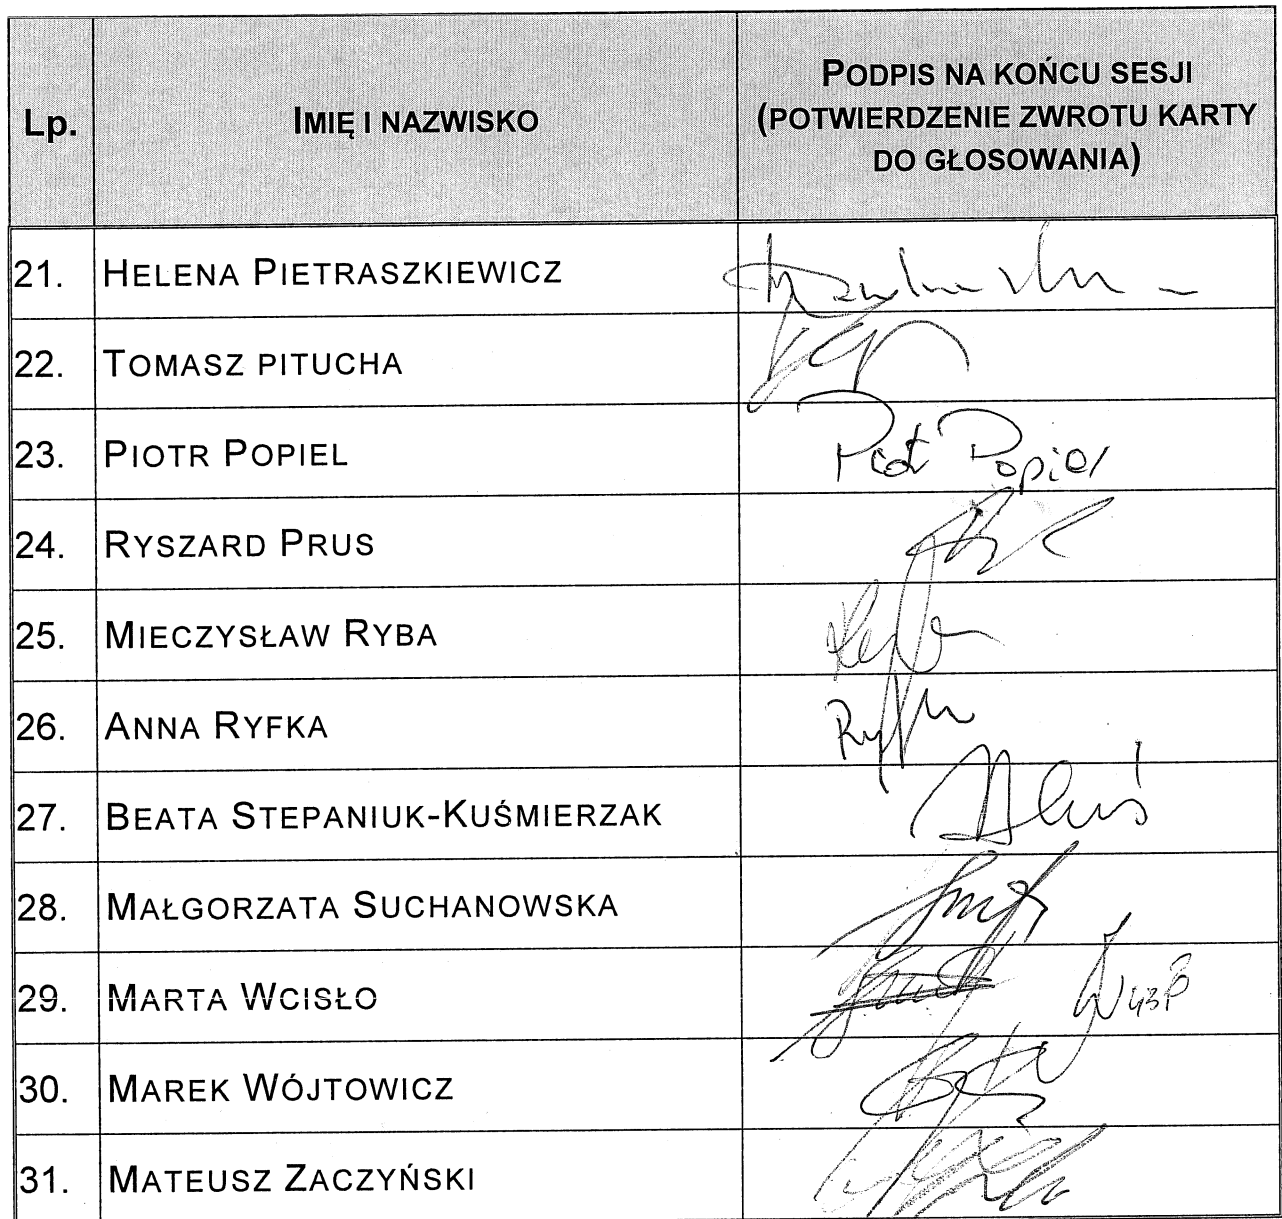 Lp.
IMIĘ I NAZWISKO
PODPIS NA KOŃCU SESJI
(POTWIERDZENIE ZWROTU KARTY
DO GŁOSOWANIA)
21. HELENA PIETRASZKIEWICZ
22. TOMASZ PITUCHA
23. PIOTR POPIEL Piotr Popiel
24. RYSZARD PRUS
25. MIECZYSŁAW RYBA
26. ANNA RYFKA
27. BEATA STEPANIUK-KUŚMIERZAK
28. MAŁGORZATA SUCHANOWSKA
29. MARTA WCISŁO
30. MAREK WÓJTOWICZ
31. MATEUSZ ZACZYŃSKI